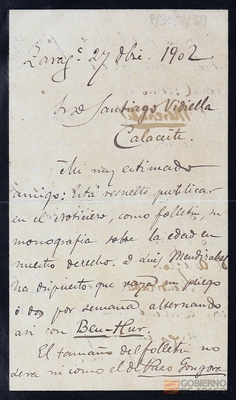 P/3058/29
Zarag.ª 27 Dbre. 1902
Sr. D. Santiago Vidiella
Calaceite.
Mi muy estimado
amigo: Está resuelto publicar
en el Noticiero, como folletín, su
monografía sobre la edad en
nuestro derecho. D. Luis Mendizábal
ha dispuesto que vaya un pliego
ó dos por semana alternando
así con Ben-Hur.
El tamaño del folletín no
será ni como el de Paco
GOBIERNO
DE ARAGON